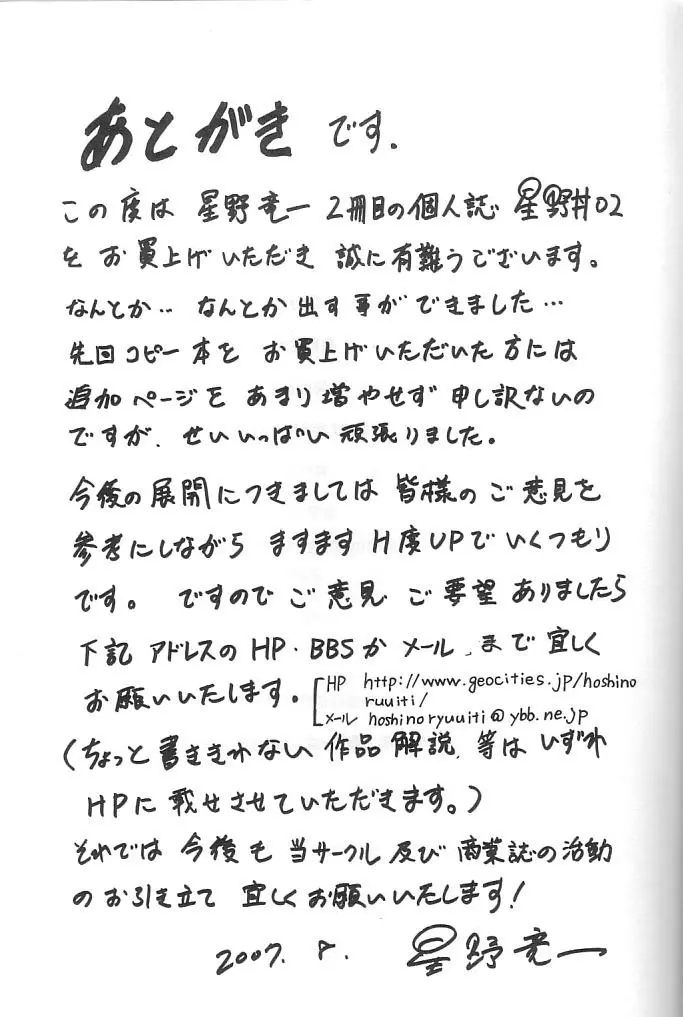 あとがき です.
この度は 星野竜一 2冊目の個人誌 星野丼02
を お買上げいただき 誠に有難うございます。
なんとか‥ なんとか出す事ができました…
先回コピー本を お買上げいただいた方には
追加ページを あまり増やせず 申し訳ないの
ですが、せいいっぱい頑張りました。
今後の展開につきましては 皆様のご意見を
参考にしながら ますますH度UPでいくつもり
です。 ですので ご意見 ご要望 ありましたら
下記アドレスのHP・BBSか メール、まで 宜しく
お願いいたします。
HP http://www.geocities.jp/hoshino
ruuiti/
メール hoshinoryuuiti@ybb.ne.jp
(ちょっと書ききれない 作品解説、等は いずれ
HPに載せさせていただきます。)
それでは 今後も 当サークル及び 商業誌の活動
のお引き立て 宜しくお願いいたします!
2007. 8. 星野竜一